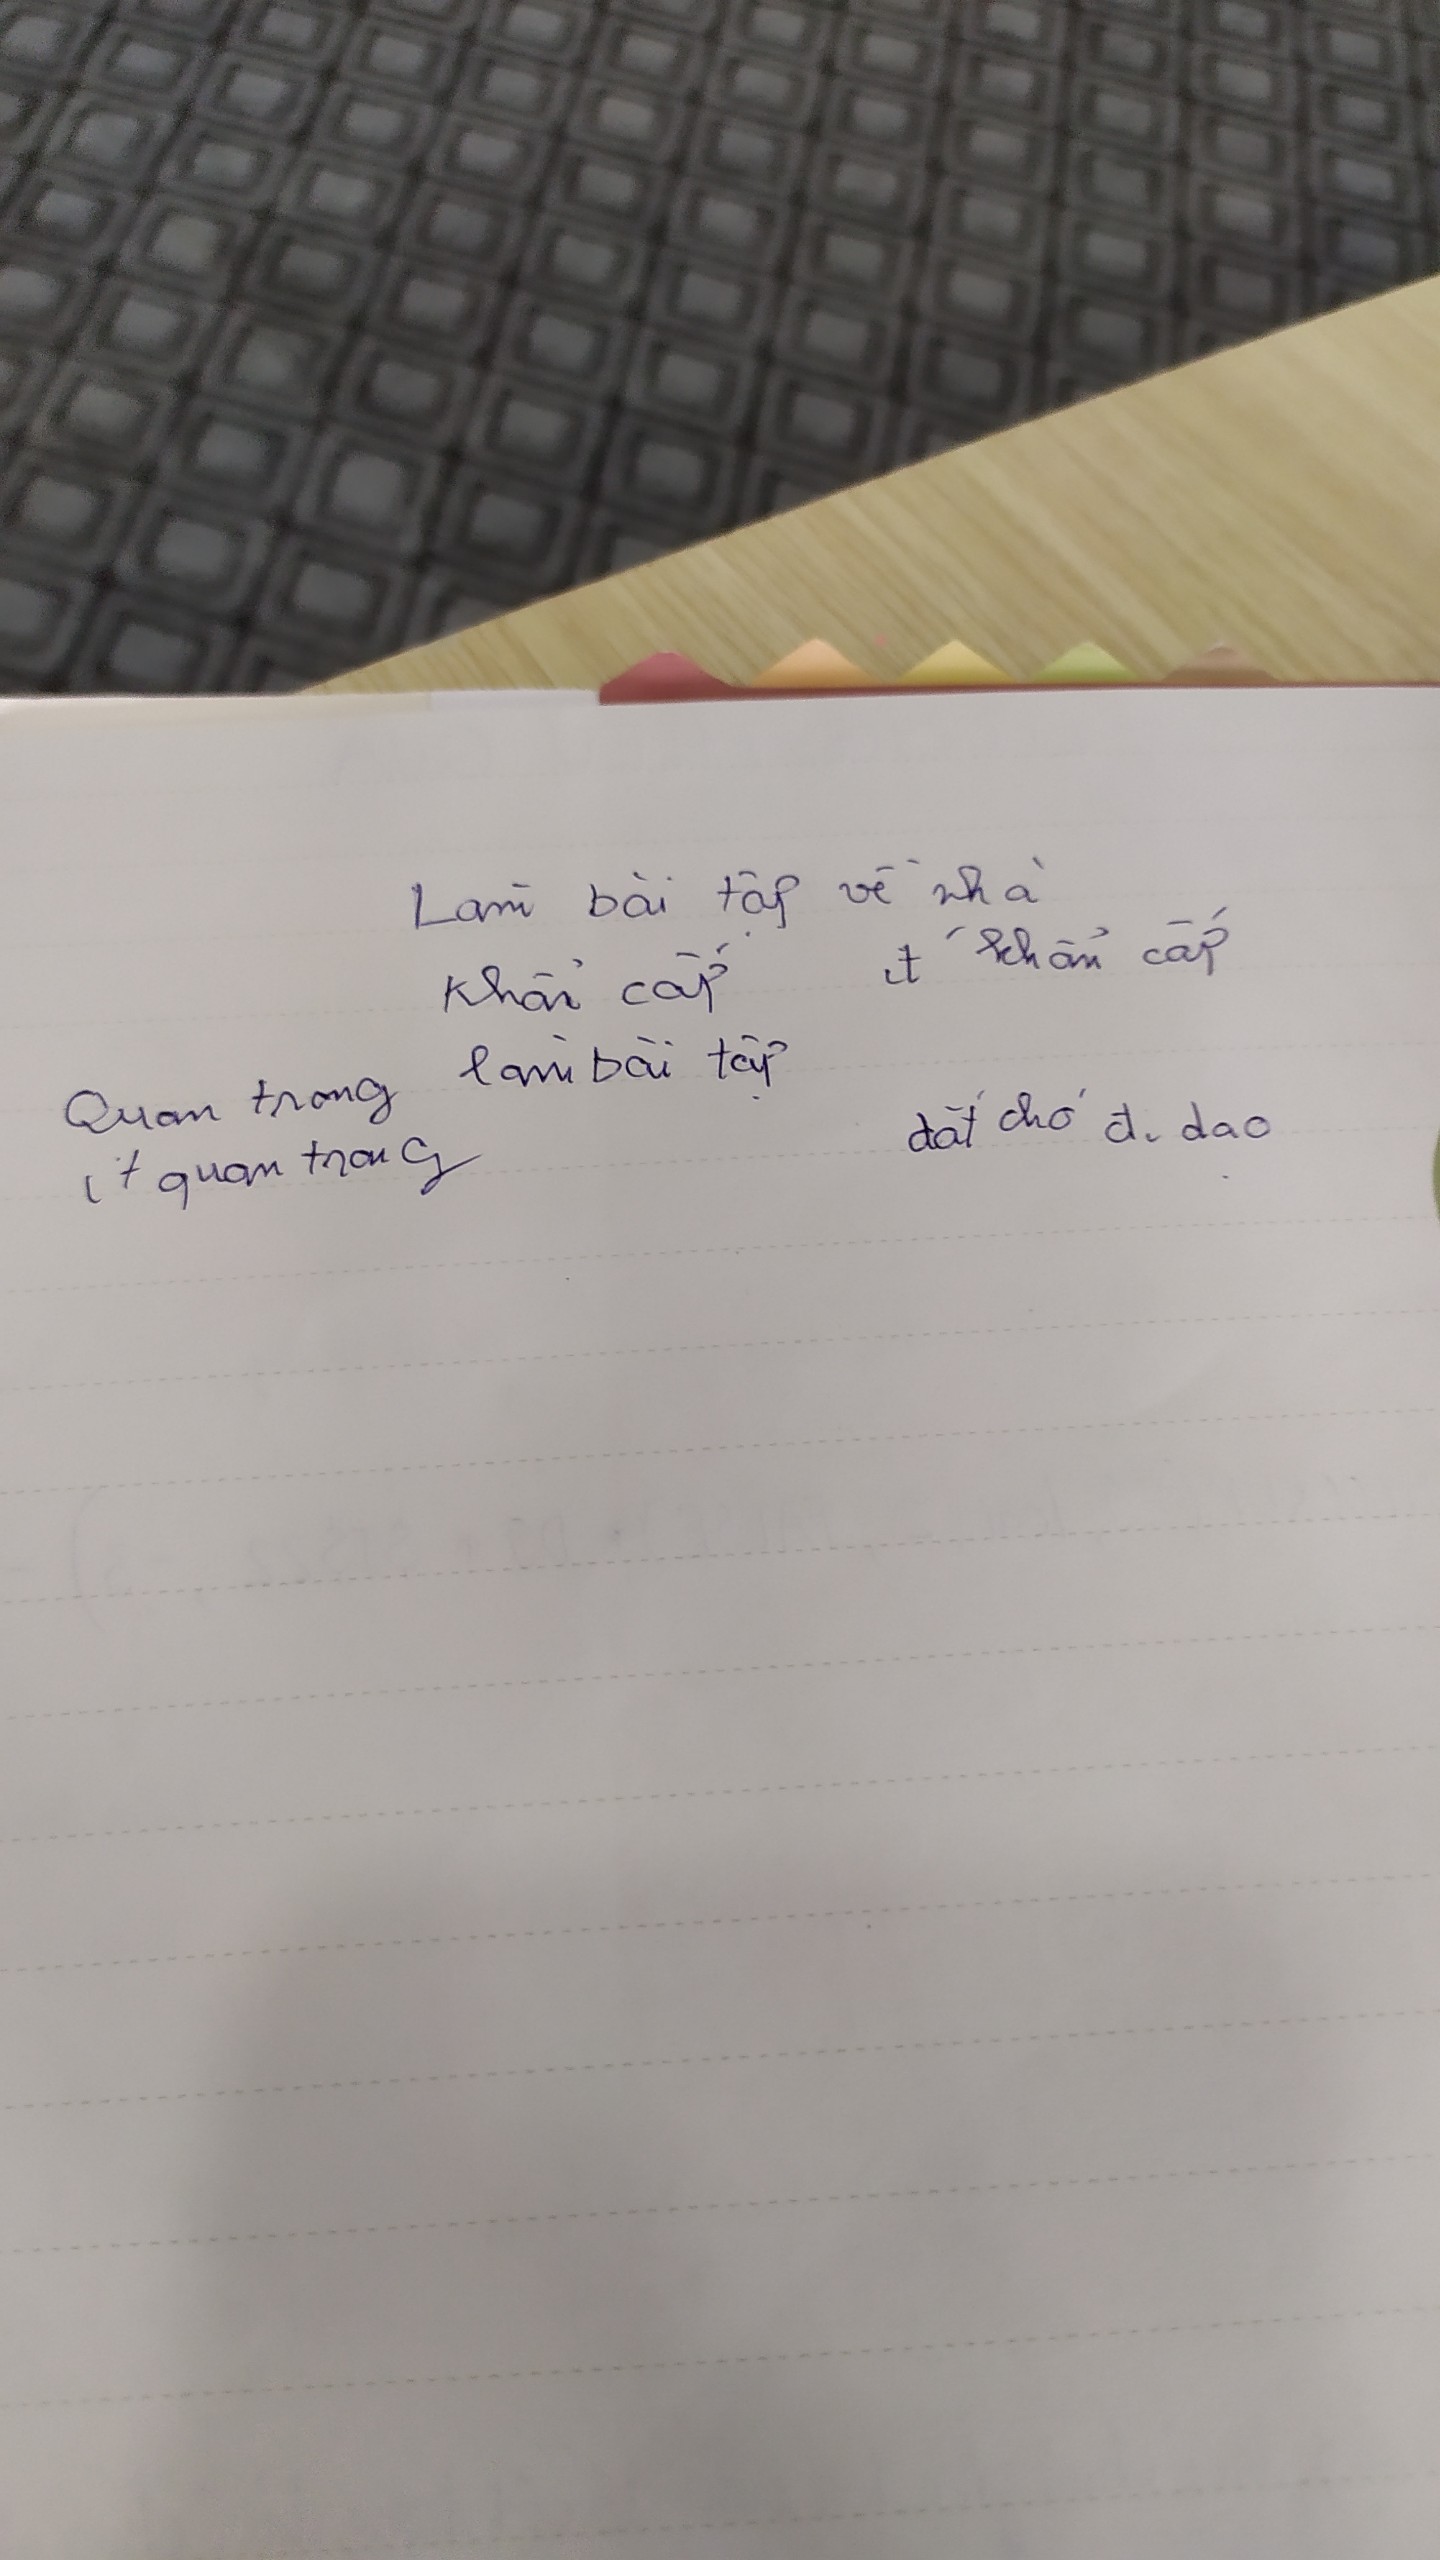 Làm bài tập về nhà
Khẩn cấp ít khẩn cấp
Quan trong làm bài tập
ít quan trong dắt chó đi dạo